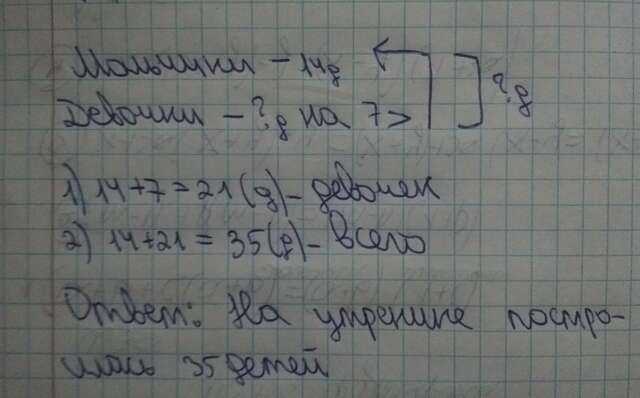 Мальчики - 14д
Девочки - ?д на 7 > ?д
1) 14+7=21(д)- девочек
2) 14+21=35(д)- всего
Ответ: На утреннике постро-
илось 35 детей